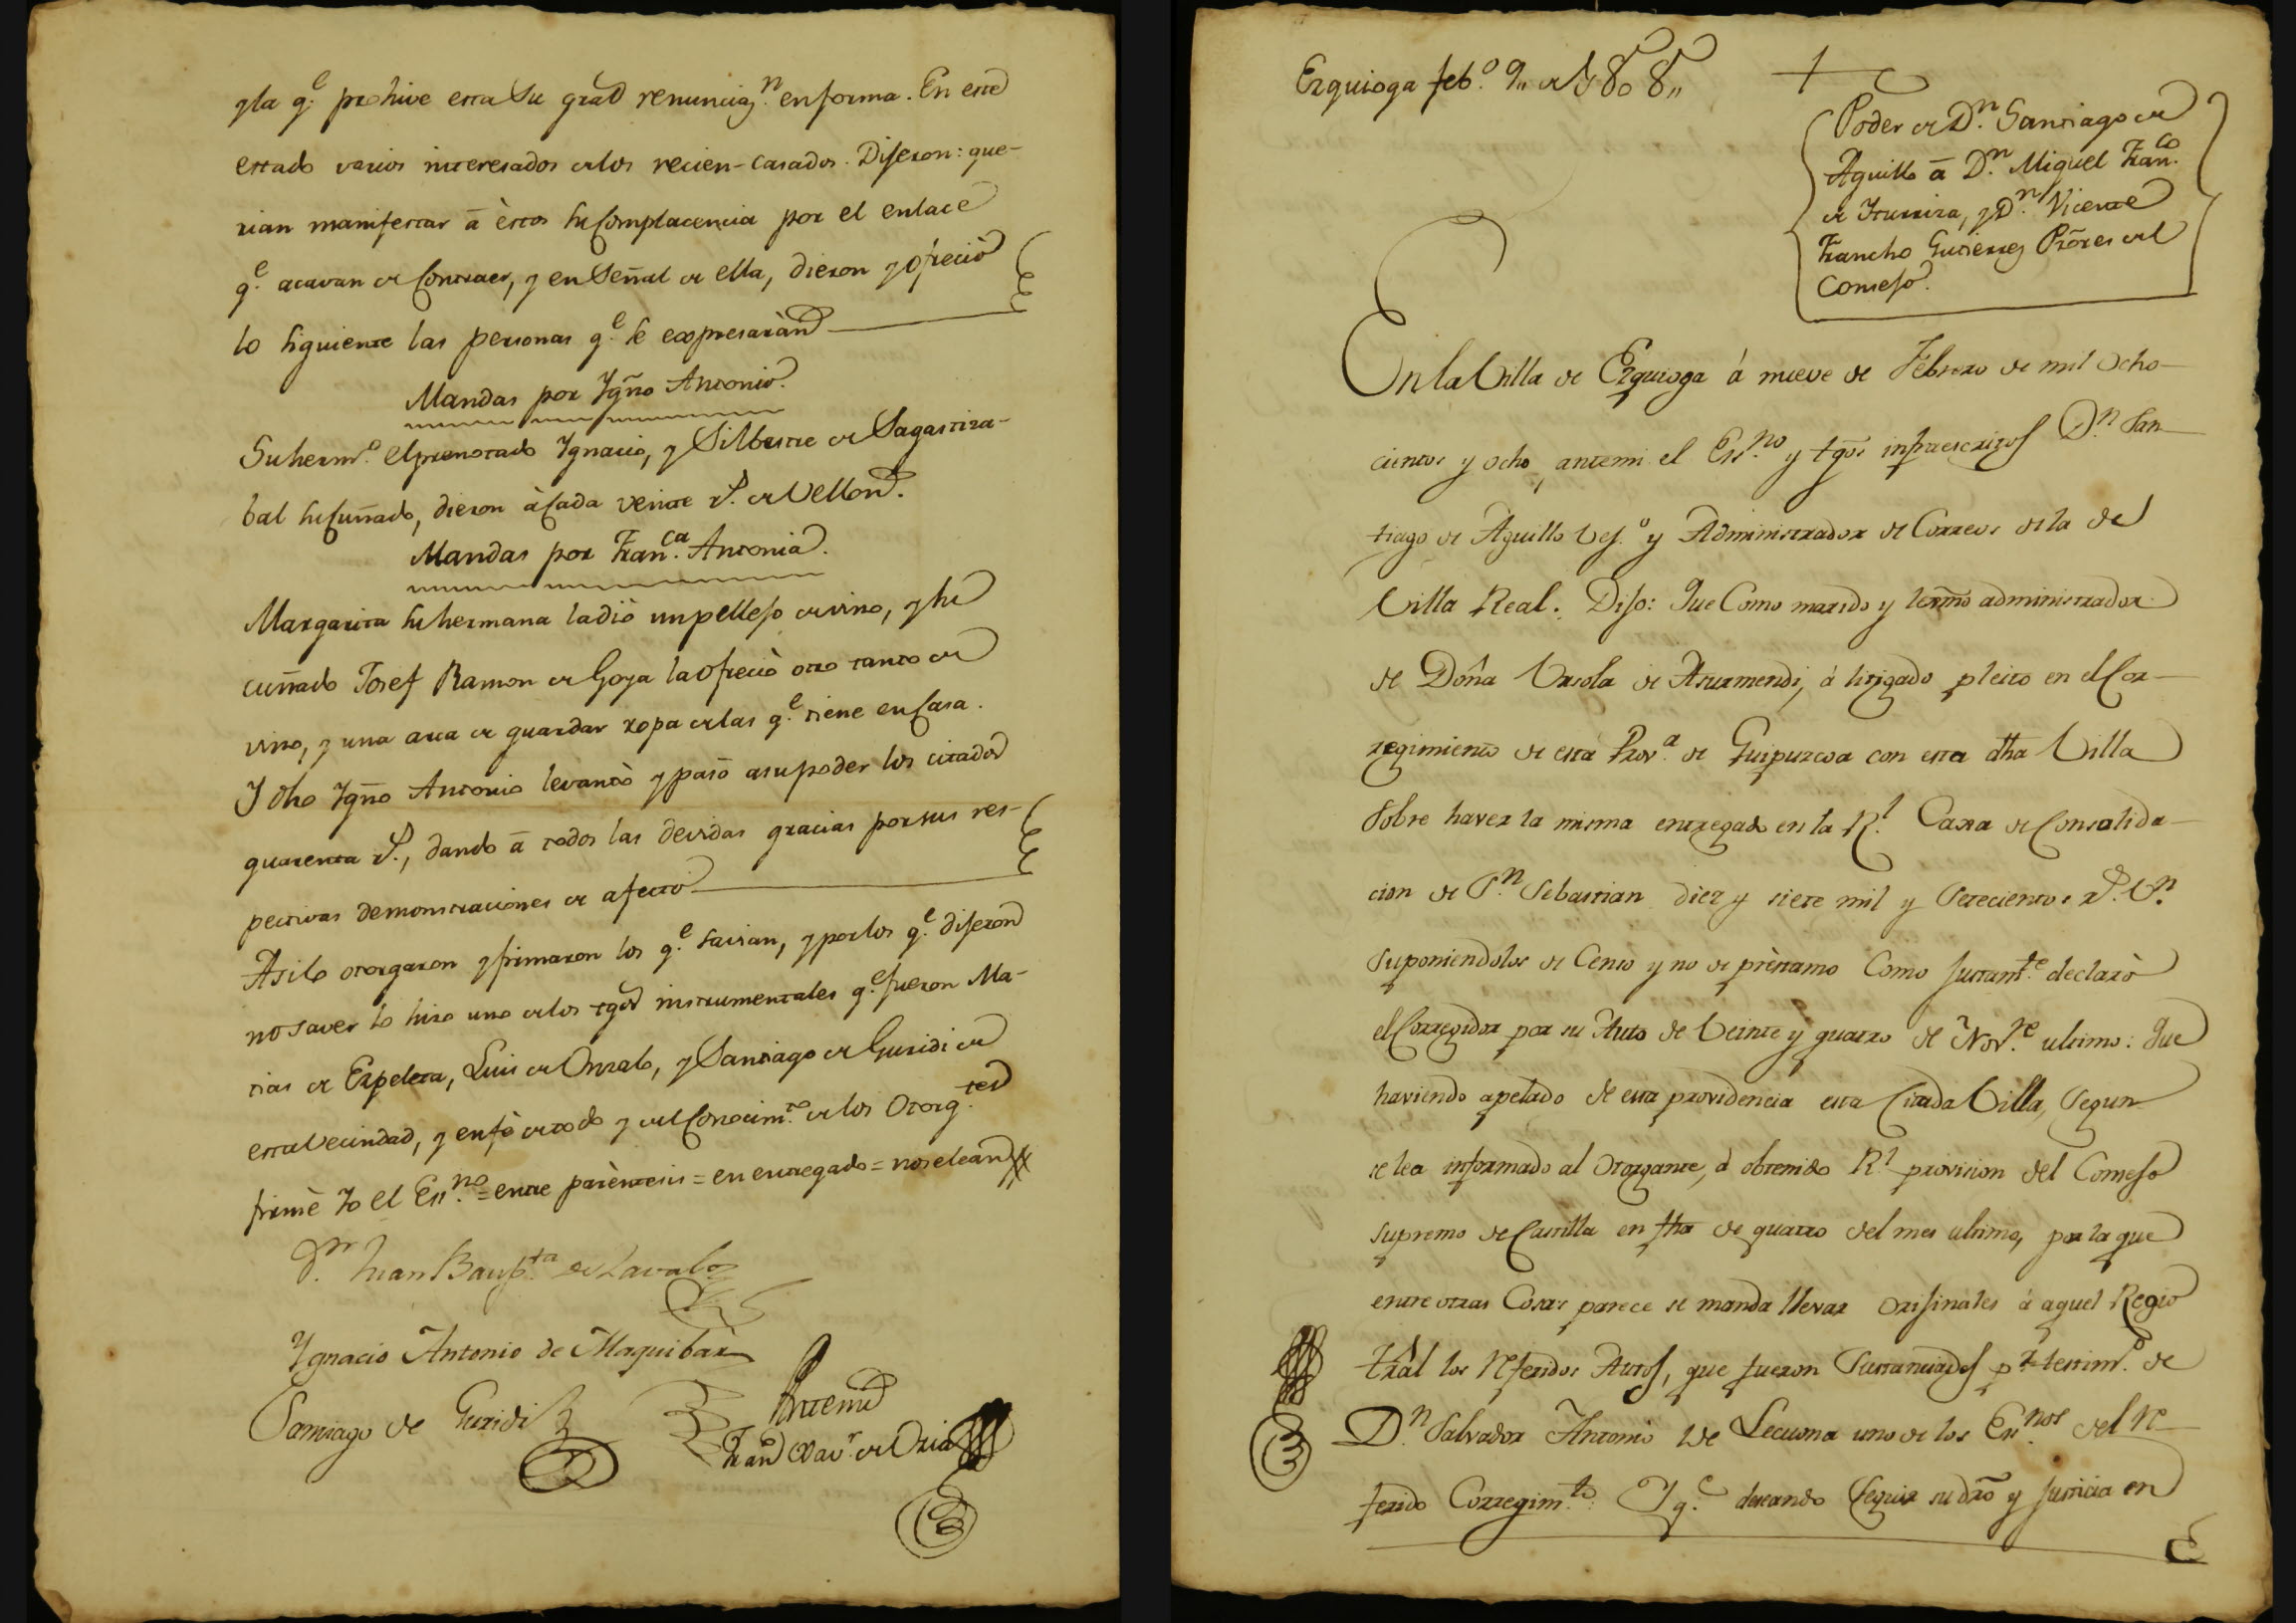 y la q.e prohive esta Su grãl renunciaz.n en forma. En este
estado varios interesados de los recien-casados. Dijeron: que-
rian manifestar â èstos su Complacencia por el enlace
q.e acavan de Contraer, y en Señal de ella, dieron y ofreciò
lo siguiente las personas q.e se expresaràn
Mandas por Ygño Antonio.
Su herm.o el prenotado Ygnacio, y Silbestre de Sagastiza-
bal su Cuñado, dieron à Cada veinte r.s de Vellon.
Mandas por Fran.ca Antonia.
Margarita su hermana la diò un pellejo de vino, y su
cuñado Josef Ramon de Goya la ofreciò otro tanto de
vino, y una arca de guardar ropa de las q.e tiene en Casa.
Y dho Ygño Antonio levantò y pasò a su poder los citados
quarenta r.s, dando â todos las devidas gracias por sus res-
pectivas demonstraciones de afecto
Asi lo otorgaron y firmaron los q.e savian, y por los q.e dijeron
no saver lo hizo uno de los tgos instrumentales q.e fueron Ma-
tias de Ezpeleta, Luis de Onzalo, y Santiago de Guridi de
esta Vecindad, y en fè de todo y del Conocim.to de los Otorg.tes
firmè Yo el Ess.no = entre parèntesis = en entregado = no se lean
D.n Juan Baup.ta de Zavalo
Ygnacio Antonio de Maquibar
Santiago de Guridi
Antemi
Fran.co Xav.r de Oria
Ezquioga feb.o 9,, de 1808,,
Poder de D.n Santiago de
Aguillo â D.n Miguel Fran.co
de Iturriza, y D.n Vicente
Francho Gutierrez Prõres del
Consejo.
En la Villa de Ezquioga á nueve de Febrero de mil ocho-
cientos y ocho, antemi el Ess.no y tgos infraescritos D.n San-
tiago de Aguillo Vez.o y Administrador de Correos de la de
Villa Real. Dijo: Que Como marido y lexmo administrador
de Doña Ursola de Asurmendi, á litigado pleito en el Cor-
regimiento de esta Prov.a de Guipuzcoa con esta dha Villa
sobre haver la misma entregado en la R.l Caxa de Consolida-
cion de S.n Sebastian diez y siete mil y setecientos r.s V.n
suponiendolos de Censo y no de prèstamo Como sustanm.te declarò
el Corregidor por su Auto de Veinte y quatro de Nov.re ultimo: Que
haviendo apelado de esta providencia esta Citada Villa, segun
se le a informado al Otorgante, á obtenido R.l provision del Consejo
supremo de Castilla en fha de quatro del mes ultimo, por la que
entre otras Cosas parece se manda llevar orijinales á aquel Regio
tràl los referidos Autos, que fueron sustanciados p.r testim.o de
D.n Salvador Antonio de Lecuona uno de los Ess.nos del re-
ferido Corregim.to: Y q.e deseando seguir su drõ y justicia en